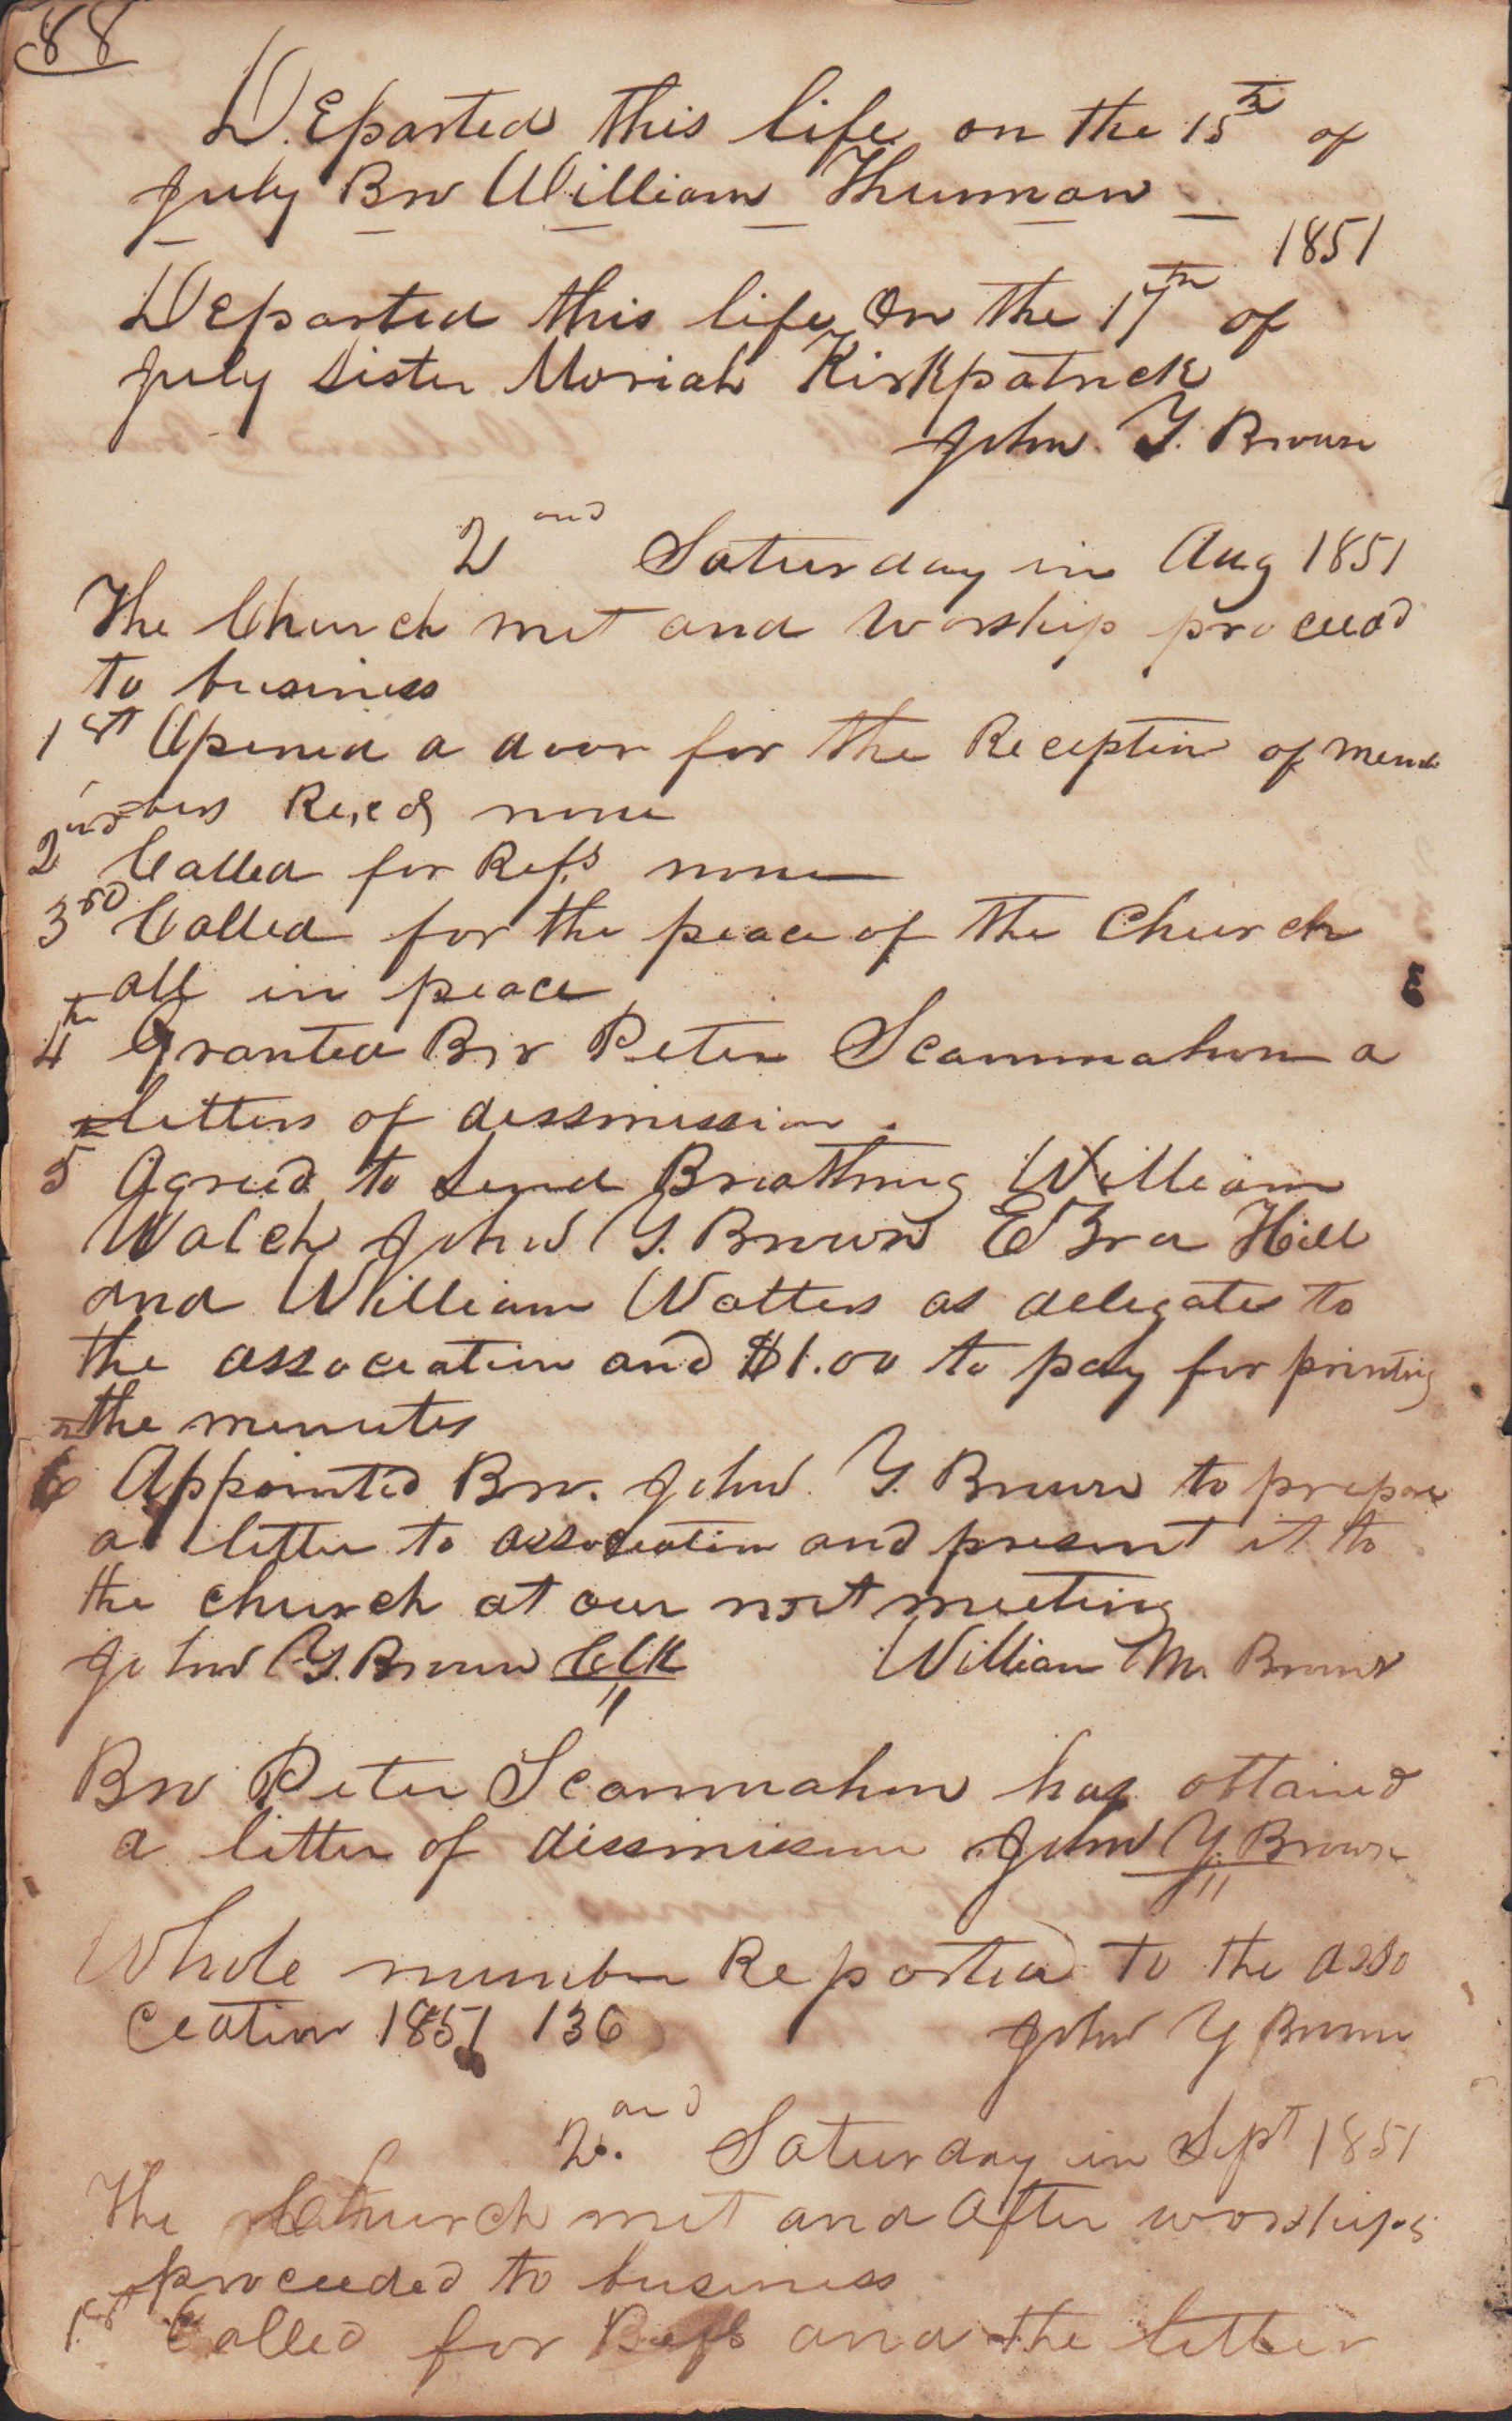 88
DEparted this life on the 15th of
July Bro William Thurman
1851
DEparted this life On the 17th of
July Sister Moriah Kirkpatrick
John. Y. Brown
2and Saturday in Aug 1851
The Church met and Worship proceed
to business
1st Opened a door for the Reception of mem
=bers Recd none
2nd Called for Refs none
3rd Called for the peace of the Church
all in peace
4th Granted Bro Peter Scammahorn a
letters of dessmission.
5th Agreed to Send Breathring William
Walch John Y. Brown EZra Hill
and William Watters as delegates to
the assoceation and $1.00 to pay for printing
the minutes
6th Appointed Bro. John Y. Brown to prepare
a letter to assoceation and present it to
the church at our next meeting
John Y. Brown ClK William M. Brown
Bro Peter Scammahorn has obtained
a letter of dissmission John Y. Brown
Whole number Reported to the asso
ceation 1851 136 John Y Brown
2.and Saturday in Sept 1851
The Church met and After worships
proceeded to business
1st Called for Refs and the letter